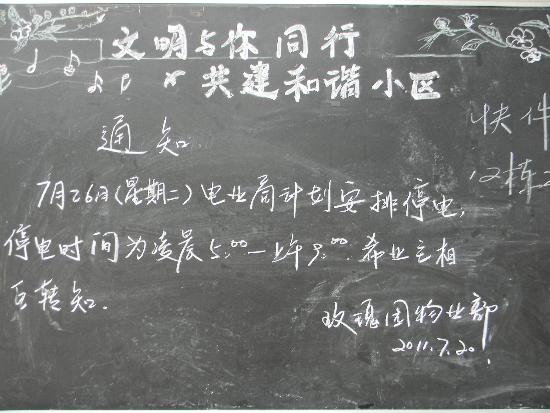 文明与你同行
共建和谐小区
快件
12栋
通知
7月26日(星期二)电业局计划安排停电,
停电时间为凌晨5:00—上午9:00.希业主相
互转知.
玫瑰园物业部
2011.7.20